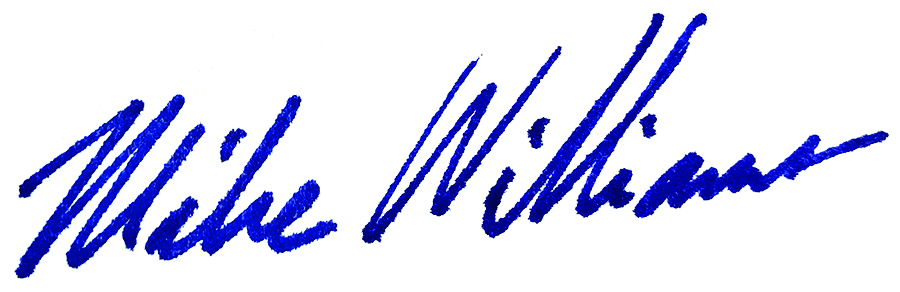 Mike Williams